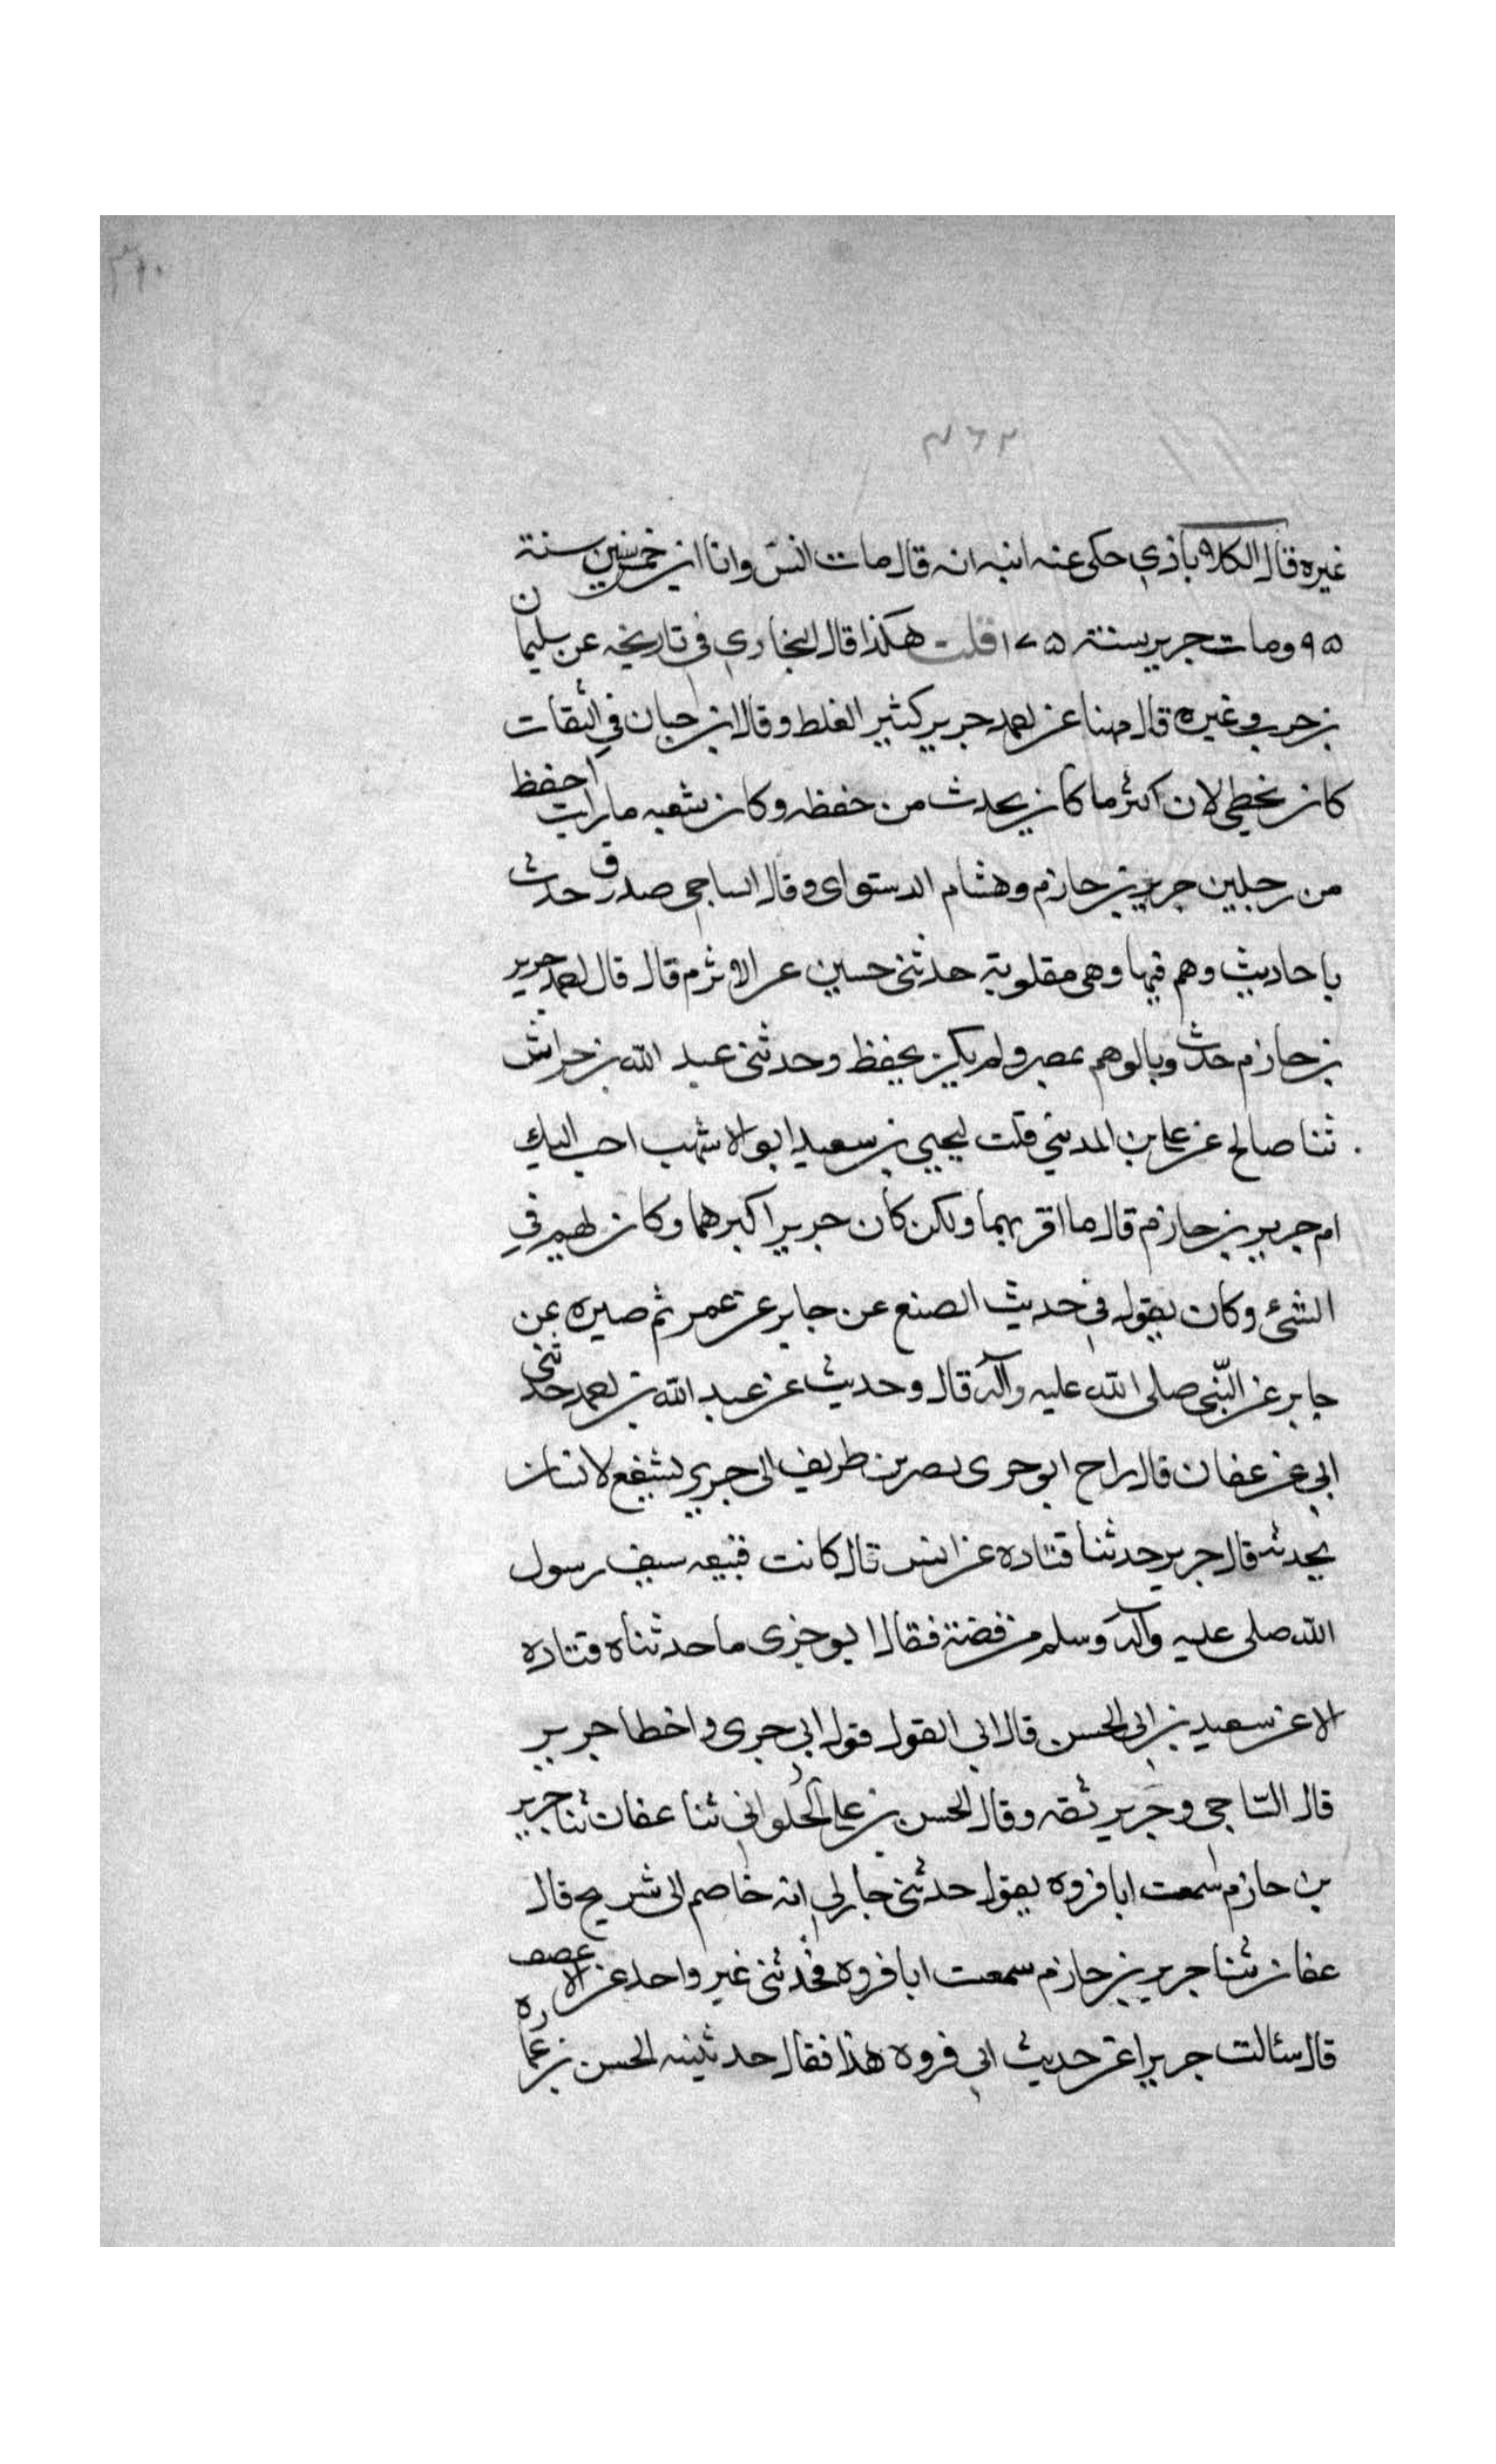 ٤٦٢
غيره قال الكلاباذي حكى عنه ابنه انه قال مات انس وانا ابن خمس سنين سنة
٩٥ ومات جرير سنة ١٧٥ قلت هكذا قال البخاري في تاريخه عن سليمان
بن حرب وغيره قال مهنا عن احمد جرير كثير الغلط وقال ابن حبان في الثقات
كان يخطى لان اكثر ما كان يحدث من حفظه وكان شعبه ما رايت احفظ
من رجلين جرير بن حازم وهشام الدستواى وقال الساجى صدوق حدث
باحاديث وهم فيها وهى مقلوبة حدثنى حسين عن الاثرم قال قال احمد جرير
بن حازم حدث وبالوهم بمصر ولم يكن يحفظ وحدثنى عبد الله بن خراش
ثنا صالح عن على بن المدينى قلت ليحيى بن سعيد ابو الاشهب احب اليك
ام جرير بن حازم قال ما اقربهما ولكن كان جرير اكبرهما وكان يهم في
الشئ وكان يقول في حديث الضبع عن جابر عن عمر ثم صيره عن
جابر عن النبى صلى الله عليه وآله قال وحديث عن عبد الله بن احمد حدثنى
ابى عن عفان قال راح ابو حرى نصر بن طريف الى جرير يشفع لانسان
يحدثه قال جرير حدثنا قتاده عن انس قال كانت قبيعه سيف رسول
الله صلى عليه وآله وسلم من فضة فقال ابو جزى ما حدثناه قتاده
الا عن سعيد بن ابى الحسن قال ابى القول قول ابى جرى واخطا جرير
قال الساجى وجرير ثقه وقال الحسن بن على الحلوانى ثنا عفان ثنا جرير
بن حازم سمعت ابا فروه يقول حدثنى جار لى انه خاصم الى شريح قال
عفان ثنا جرير بن حازم سمعت ابا فروه فحدثنى غير واحد عن الا عصف
قال سئالت جريرا عن حديث ابى فروه هذا فقال حدثنيه الحسن بن عماره